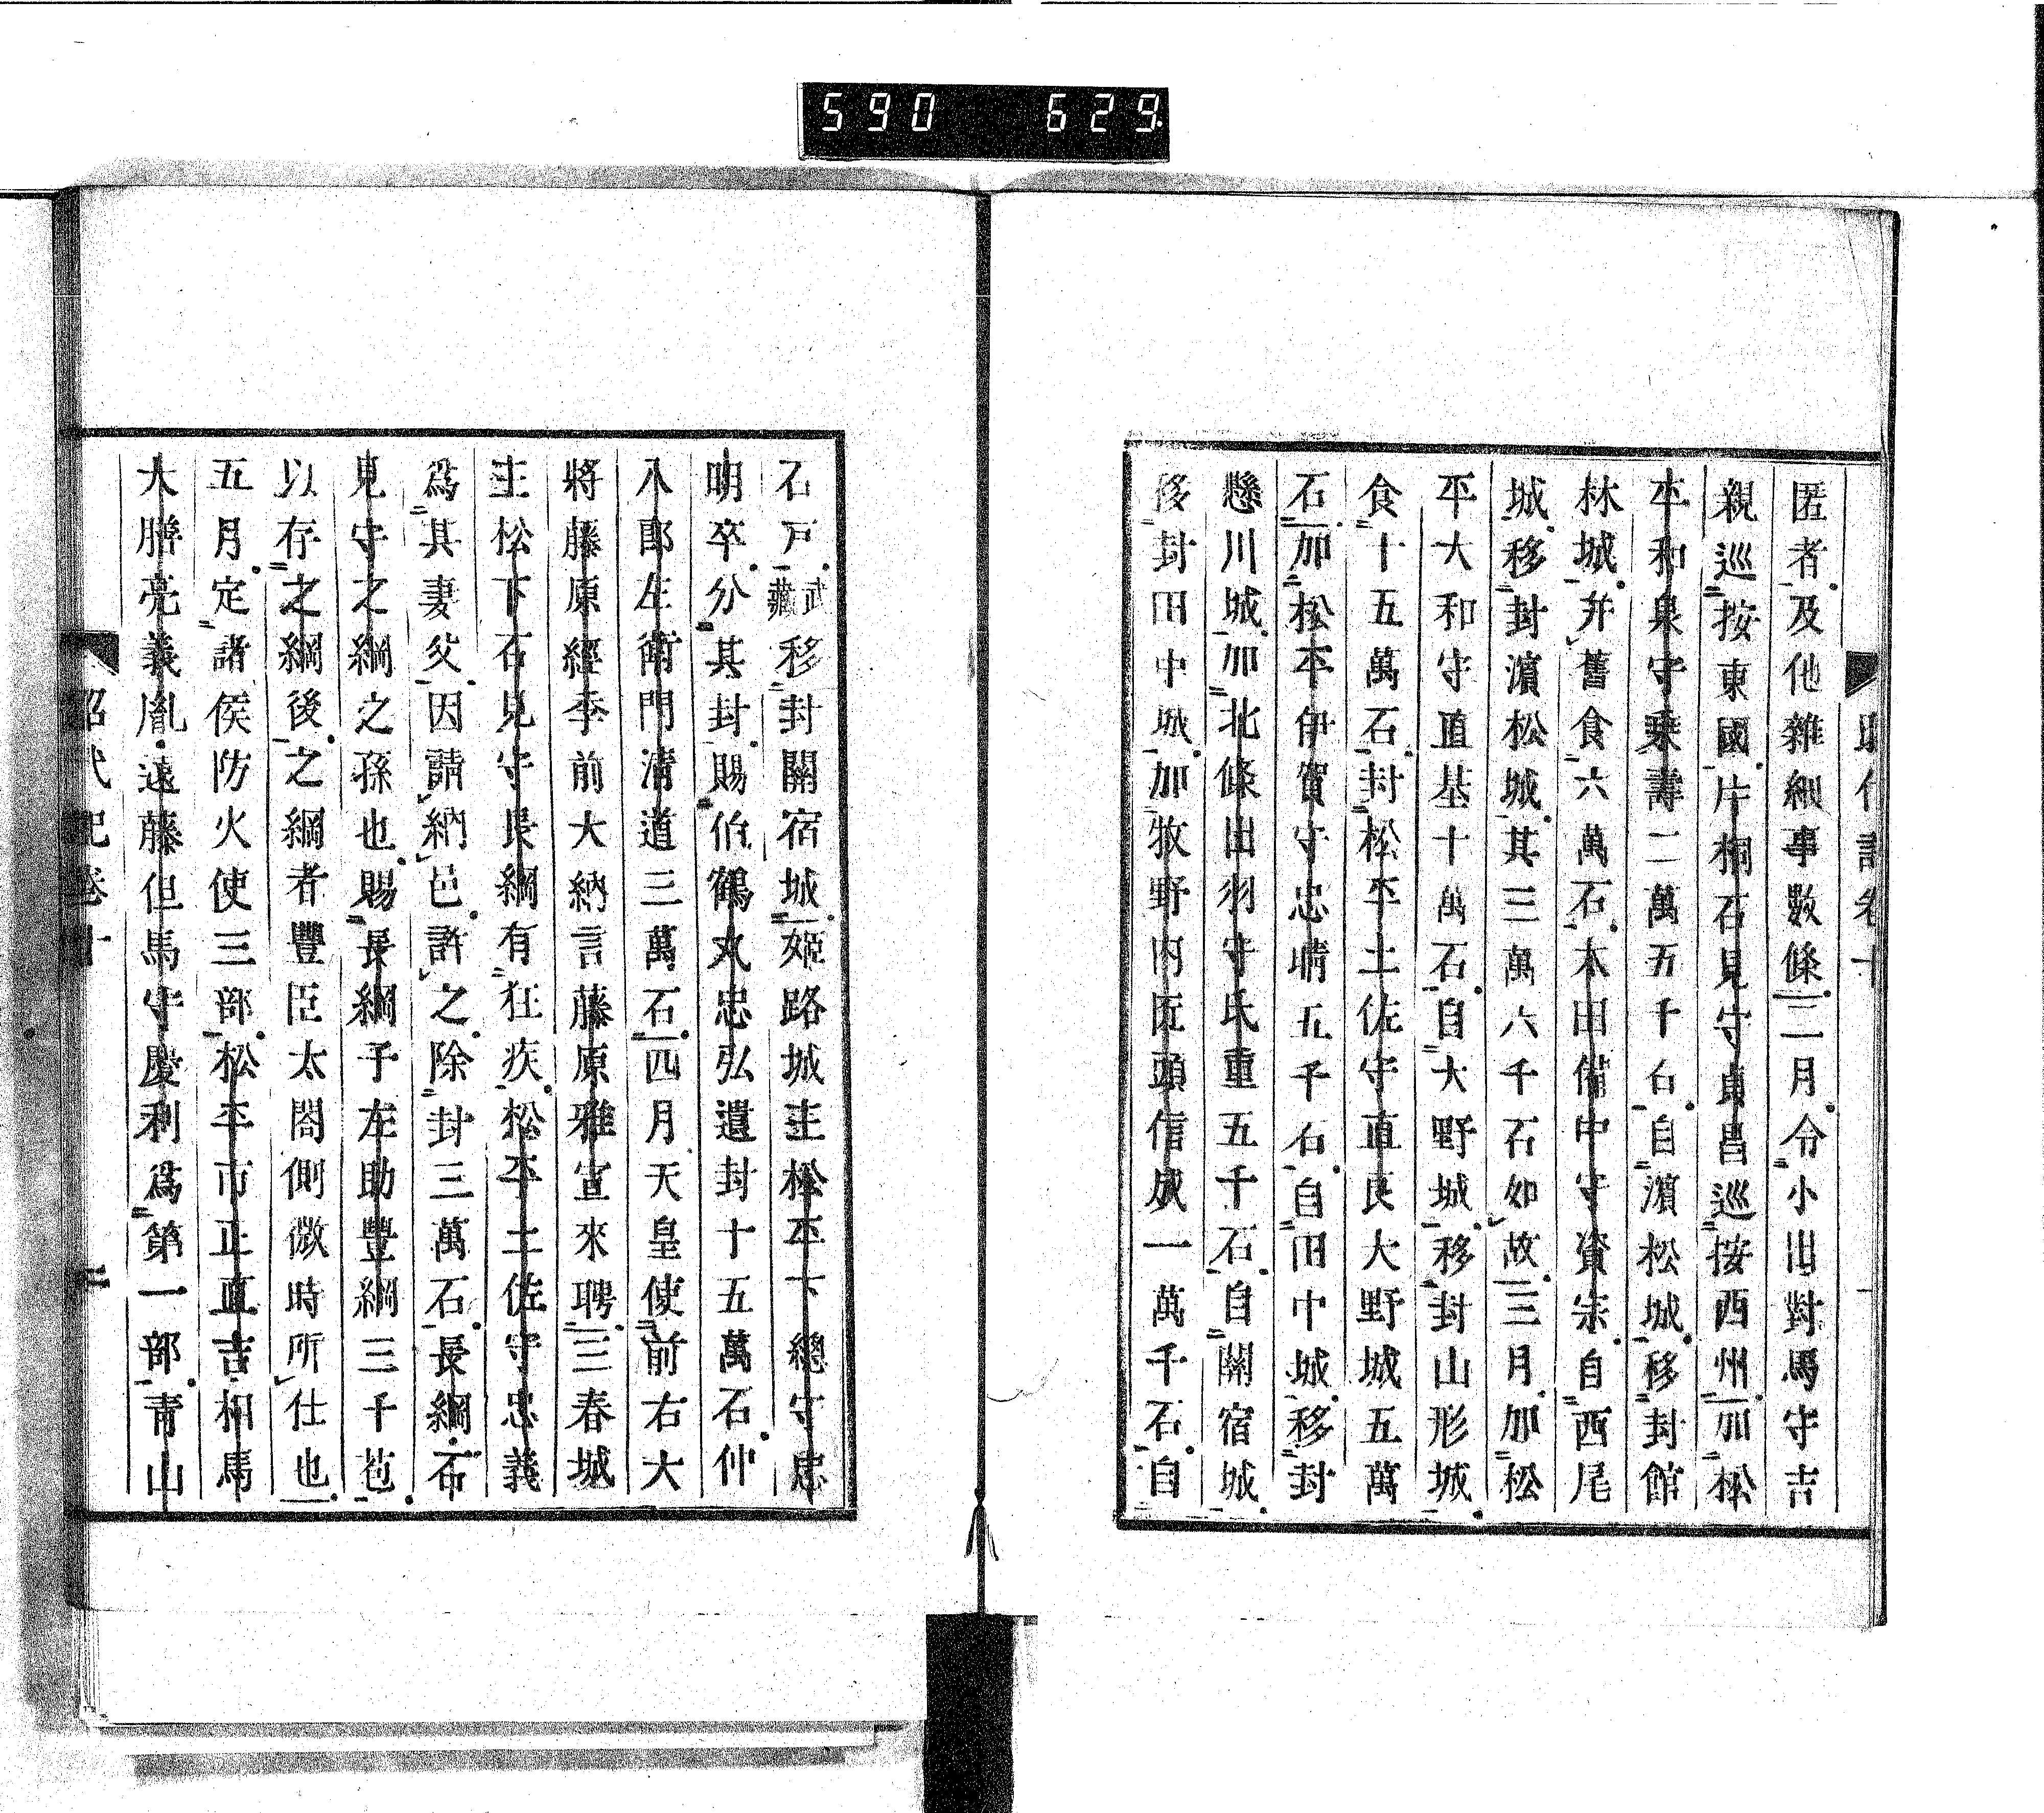 590 629
匿者及他雜細事數條二月令小出對馬守吉
親巡按東國片桐石見守貞昌巡按西州加松
平和泉守乗壽二萬五千石自濵松城移封館
林城并舊食六萬石太田備中守資宗自西尾
城移封濵松城其三萬六千石如故三月加松
平大和守直基十萬石自大野城移封山形城
食十五萬石封松平土佐守直良大野城五萬
石加松平伊賀守忠晴五千石自田中城移封
懸川城加北條出羽守氏重五千石自關宿城
移封田中城加牧野内匠頭信成一萬千石自
石戸武藏移封關宿城姫路城主松平下總守忠
明卒分其封賜伯鶴丸忠弘遺封十五萬石仲
八郎左衛門清道三萬石四月天皇使前右大
將藤原經季前大納言藤原雅宣來聘三春城
主松下石見守長綱有狂疾松平土佐守忠義
爲其妻父因請納邑許之除封三萬石長綱石
見守之綱之孫也賜長綱子左助豐綱三千苞
以存之綱後之綱者豐臣太閤側微時所仕也
五月定諸侯防火使三部松平市正直吉相馬
大膳亮義胤遠藤但馬守慶利爲第一部青山
昭代記卷十 二